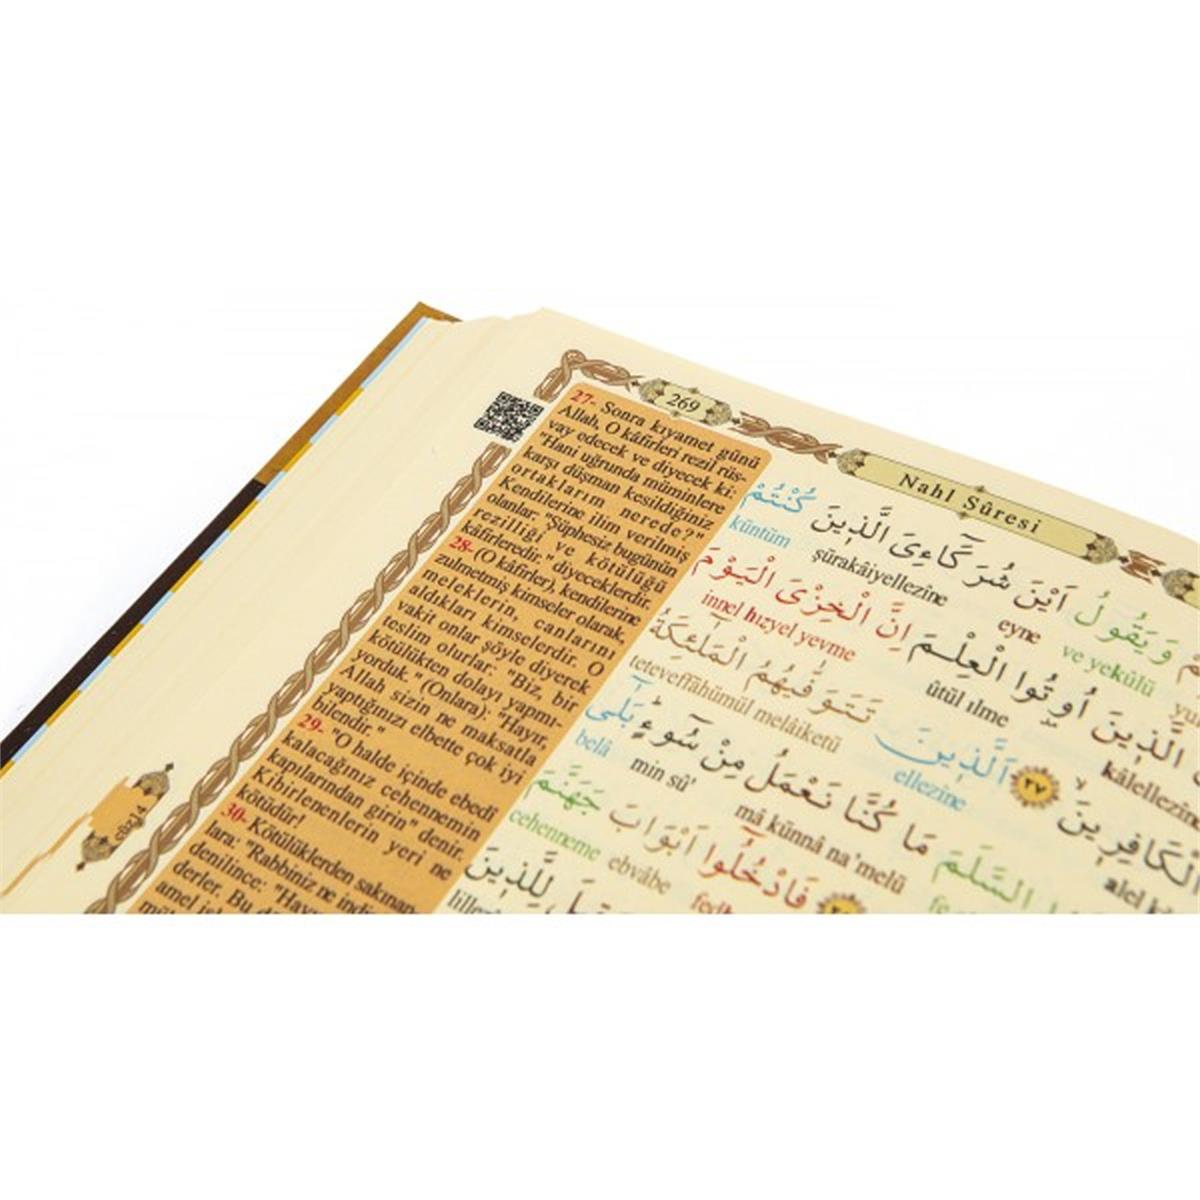 269
Nahl Sûresi
27- Sonra kıyamet günü
Allah, O kâfirleri rezil rüs-
vay edecek ve diyecek ki:
"Hani uğrunda müminlere
karşı düşman kesildiğiniz
ortaklarım nerede?"
Kendilerine ilim verilmiş
olanlar: "Şüphesiz bugünün
rezilliği ve kötülüğü
kâfirleredir." diyeceklerdir.
28- (O kâfirler), kendilerine
zulmetmiş kimseler olarak,
meleklerin, canlarını
aldıkları kimselerdir. O
vakit onlar şöyle diyerek
teslim olurlar: "Biz, bir
kötülükten dolayı yapmı-
yorduk." (Onlara): "Hayır,
Allah sizin ne maksatla
yaptığınızı elbette çok iyi
bilendir."
29- "O halde içinde ebedî
kalacağınız cehennemin
kapılarından girin" denir.
Kibirlenenlerin yeri ne
kötüdür!
30- Kötülüklerden sakınan-
lara: "Rabbiniz ne indi
denilince: "Hayı
derler. Bu d
وَيَقُولُ اَيْنَ شُرَكَٓاءِىَ الَّذِينَ كُنْتُمْ
ve yekülü eyne şürakâiyellezîne küntüm
الَّذِينَ اُوتُوا الْعِلْمَ اِنَّ الْخِزْىَ الْيَوْمَ
kâlellezîn ûtül ılme innel hızyel yevme
الْكَافِرِينَ ٢٧ اَلَّذِينَ تَتَوَفّٰيهُمُ الْمَلٰٓئِكَةُ
alel k ellezîne teteveffâhümül melâiketü
السَّلَمَ مَا كُنَّا نَعْمَلُ مِنْ سُٓوءٍ بَلٰٓى
mâ künnâ na'melü min sû' belâ
فَادْخُلُٓوا اَبْوَابَ جَهَنَّمَ
ebvâbe cehenneme
لِلَّذِينَ